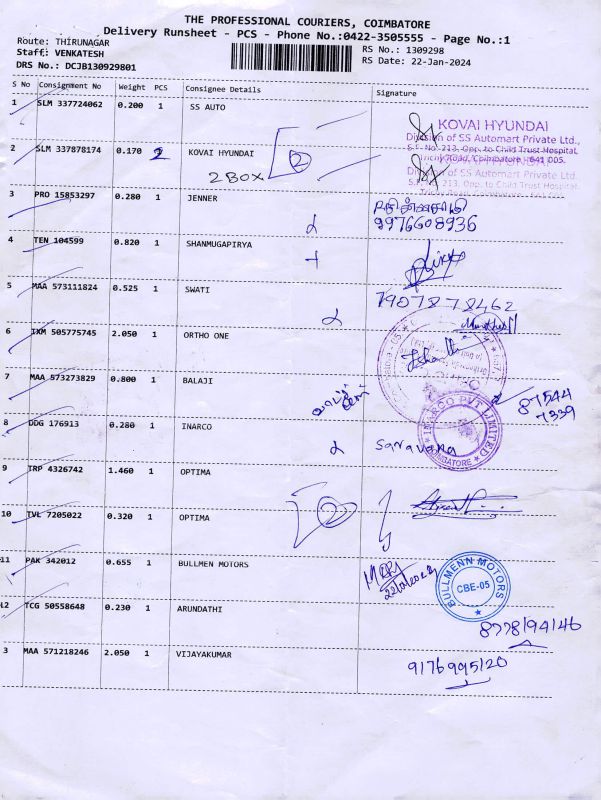 THE PROFESSIONAL COURIERS, COIMBATORE
Delivery Runsheet - PCS - Phone No.:0422-3505555 - Page No.:1
Route: THIRUNAGAR
Staff: VENKATESH
DRS No.: DCJB130929801
RS No.: 1309298
RS Date: 22-Jan-2024
S No Consignment No Weight PCS Consignee Details Signature
1 SLM 337724062 0.200 1 SS AUTO
KOVAI HYUNDAI
Division of SS Automart Private Ltd.,
S.F. No. 213, Opp. to Child Trust Hospital,
Trichy Road, Coimbatore - 641 005.
2 SLM 337878174 0.170 2 KOVAI HYUNDAI 2
2 BOX
Division of SS Automart Private Ltd.,
S.F. No. 213, Opp. to Child Trust Hospital,
3 PRO 15853297 0.280 1 JENNER
9976608936
4 TEN 104599 0.820 1 SHANMUGAPIRYA
5 MAA 573111824 0.525 1 SWATI
7907878462
6 IXM 505775745 2.050 1 ORTHO ONE
7 MAA 573273829 0.800 1 BALAJI
87544
7339
8 DDG 176913 0.280 1 INARCO
INARCO PVT LIMITED
COIMBATORE
Saravana
9 TRP 4326742 1.460 1 OPTIMA
10 TVL 7205022 0.320 1 OPTIMA 2
11 PAK 342012 0.655 1 BULLMEN MOTORS
BULLMENN MOTORS
CBE-05
12 TCG 50558648 0.230 1 ARUNDATHI
8778194146
3 MAA 571218246 2.050 1 VIJAYAKUMAR
9176995120